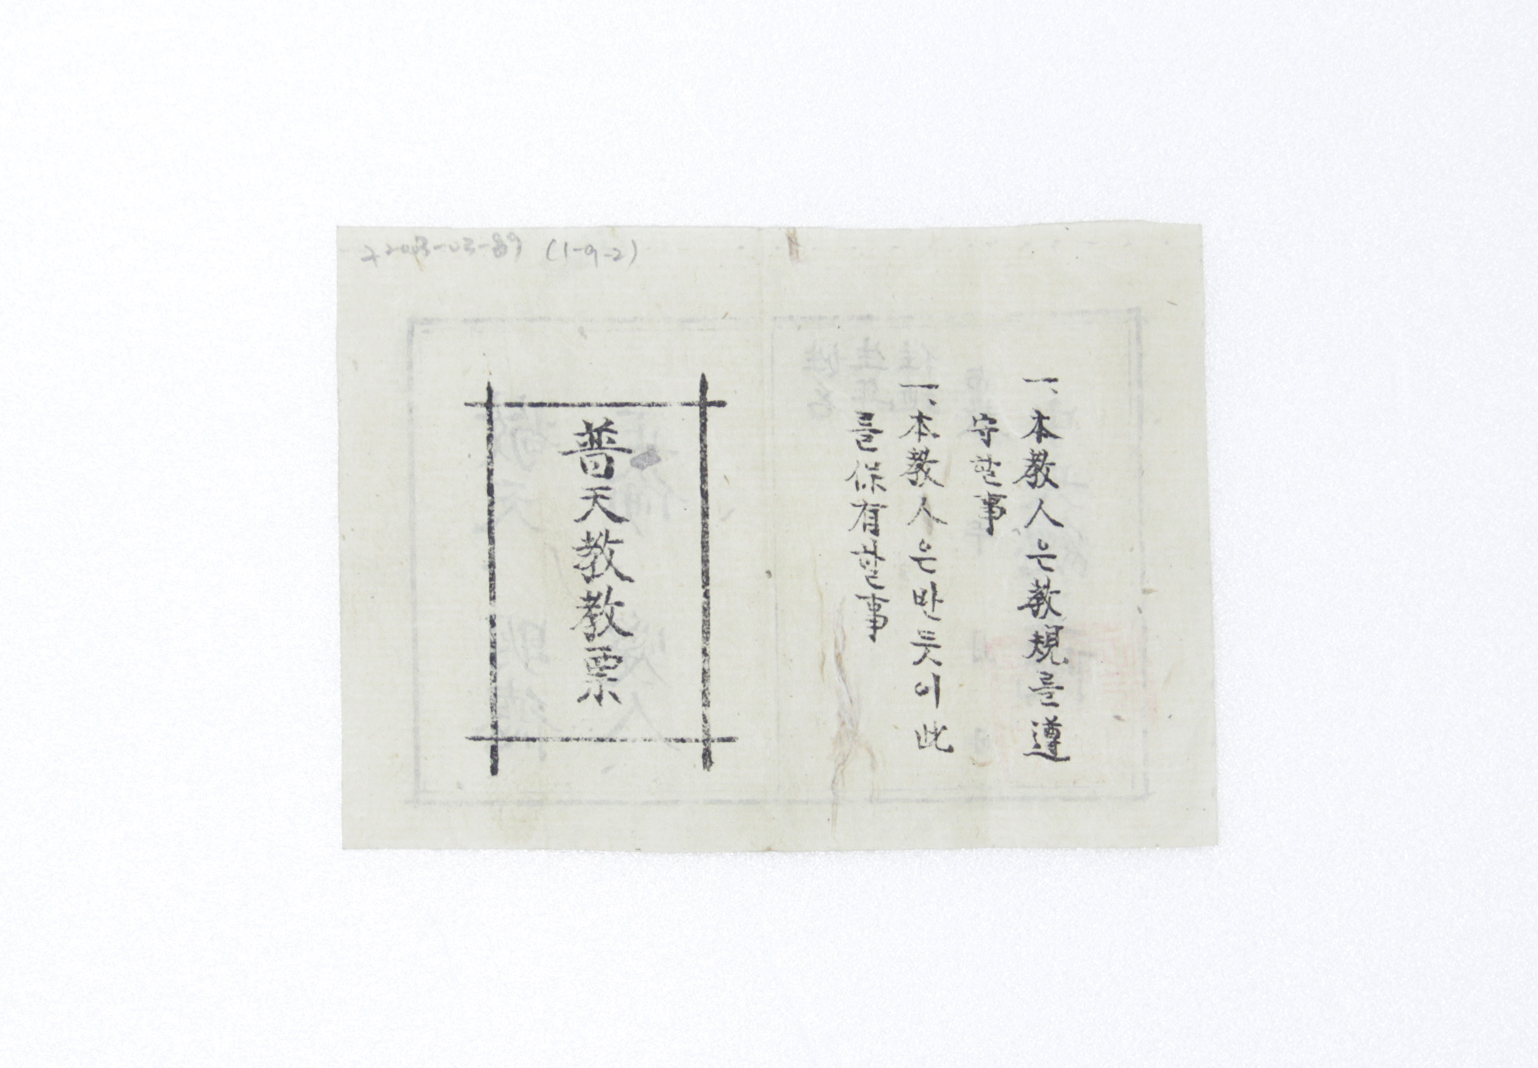 一、本教人은教規를遵
守할事
一、本教人은반듯이此
를保有할事
普天教教票
(1-9-2)